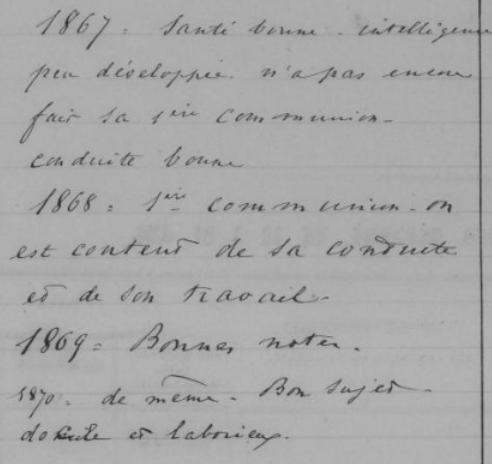 1867 = Santé bonne - intelligence
peu développée. n'a pas encore
fait sa 1ère communion -
conduite bonne
1868 = 1ère communion - on
est content de sa conduite
et de son travail -
1869 = Bonnes notes -
1870 = de même - Bon sujet -
docile et laborieux.